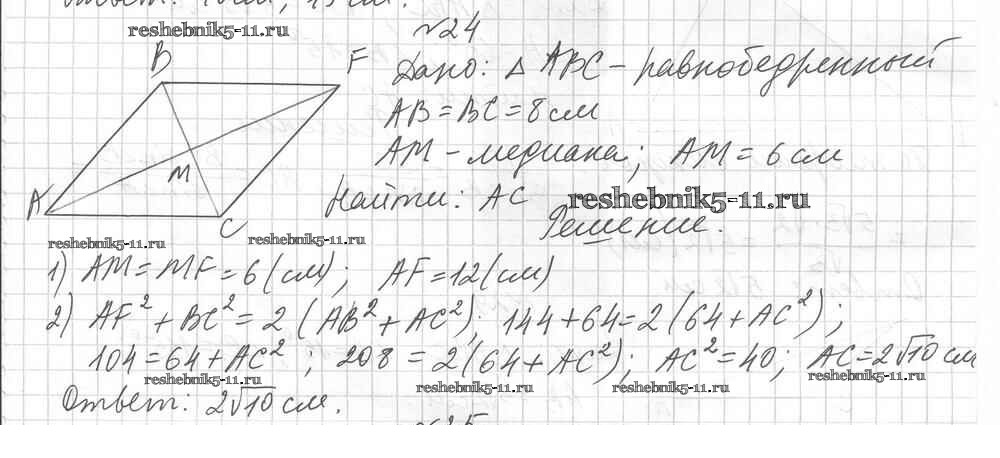 Ответ: 10 см, 15 см.
reshebnik5-11.ru
№24
B
F
Дано: △ ABC - равнобедренный
AB = BC = 8 см
AM - медиана; AM = 6 см
M
A
C
Найти: AC
reshebnik5-11.ru
Решение.
reshebnik5-11.ru
reshebnik5-11.ru
1) AM = MF = 6 (см); AF = 12 (см)
2) AF² + BC² = 2 (AB² + AC²); 144 + 64 = 2 (64 + AC²);
104 = 64 + AC²; 208 = 2 (64 + AC²); AC² = 40; AC = 2√10 см
reshebnik5-11.ru
reshebnik5-11.ru
reshebnik5-11.ru
reshebnik5-11.ru
Ответ: 2√10 см.
№25